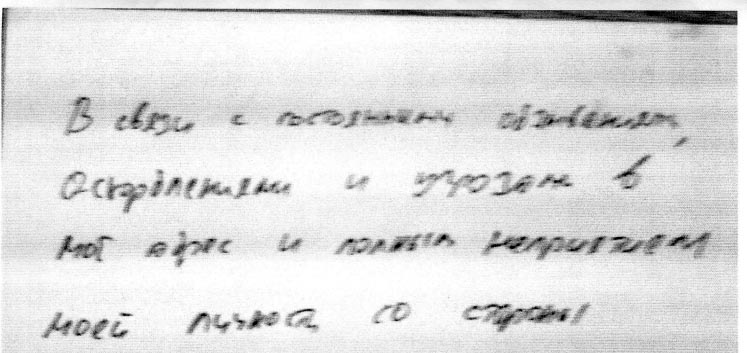 В связи с постоянными обзываниями,
Оскорблениями и угрозами в
мой адрес и полным неприятием
моей личности со стороны